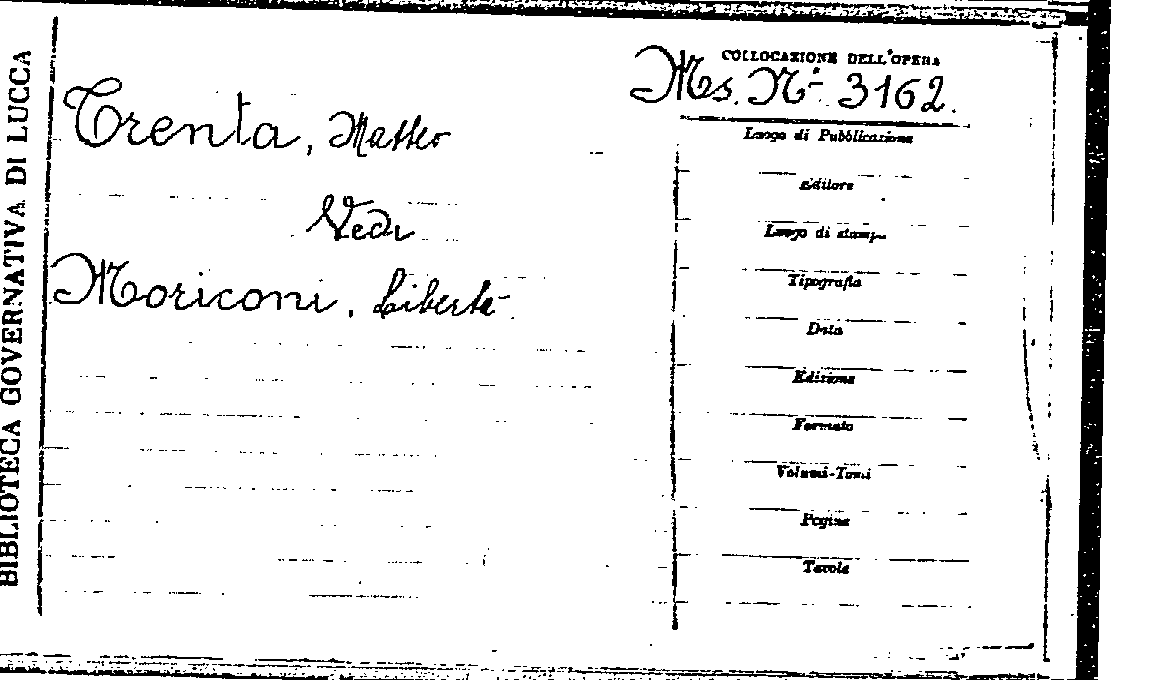 BIBLIOTECA GOVERNATIVA DI LUCCA
Trenta, Matteo
Vedi
Moriconi, Libertà
COLLOCAZIONE DELL'OPERA
Ms. N.º 3162.
Luogo di Pubblicazione
Editore
Luogo di stampa
Tipografia
Data
Edizione
Formato
Volumi-Tomi
Pagine
Tavole